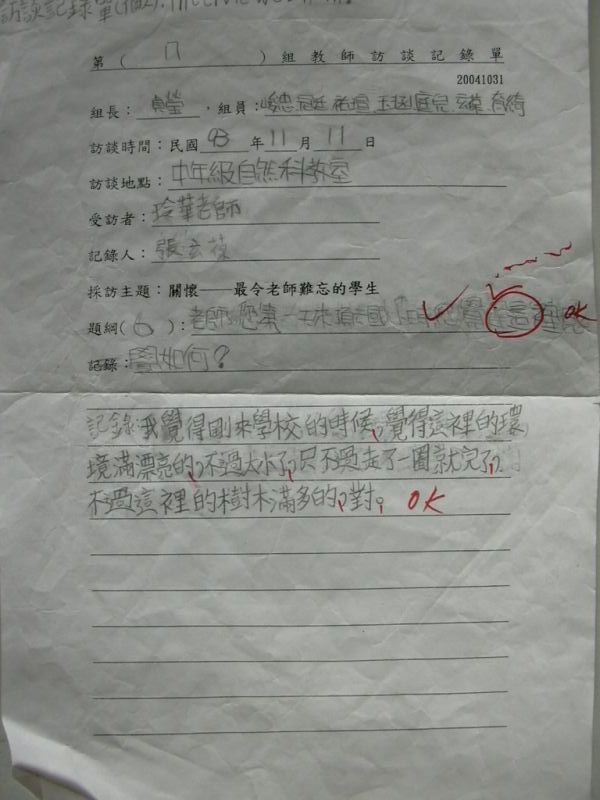 訪談記錄單
第( 八 )組教師訪談記錄單
20041031
組長: 貞瑩 ,組員:
訪談時間:民國 93 年 11 月 11 日
訪談地點: 中年級自然科教室
受訪者: 玲華老師
記錄人: 張
採訪主題:關懷——最令老師難忘的學生
題綱( 6 ): 老師您第一天來 國小 您覺 這裡 OK
記錄: 如何?
記錄:我覺得剛來學校的時候,覺得這裡的環
境滿漂亮的,不過太小了,只不過走了一圈就完了,
不過這裡的樹木滿多的,對。 OK